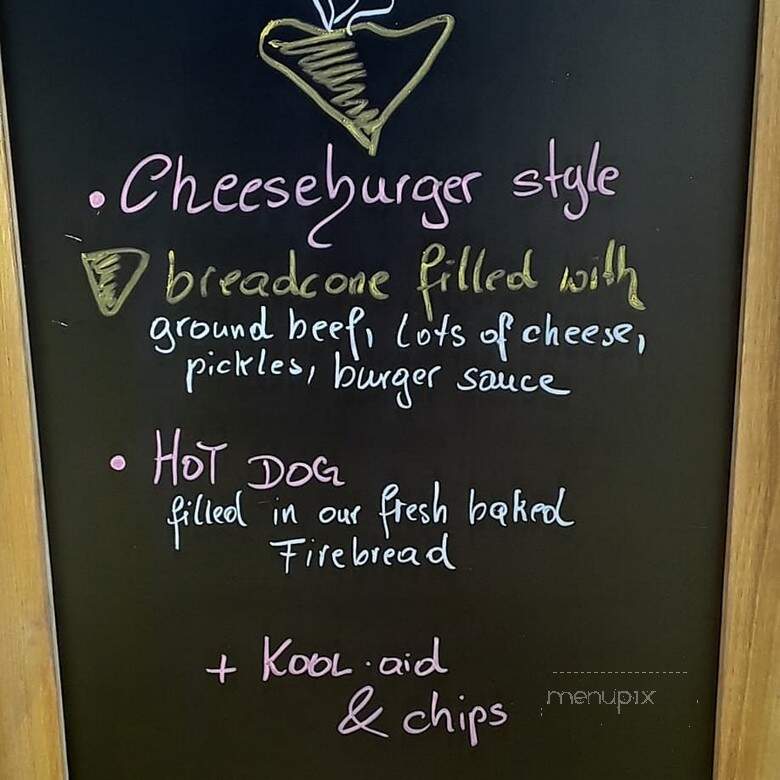 • Cheeseburger style
breadcone filled with
ground beef, lots of cheese,
pickles, burger sauce
• HOT DOG
filled in our fresh baked
Firebread
+ KOOL-aid
& chips
menupix